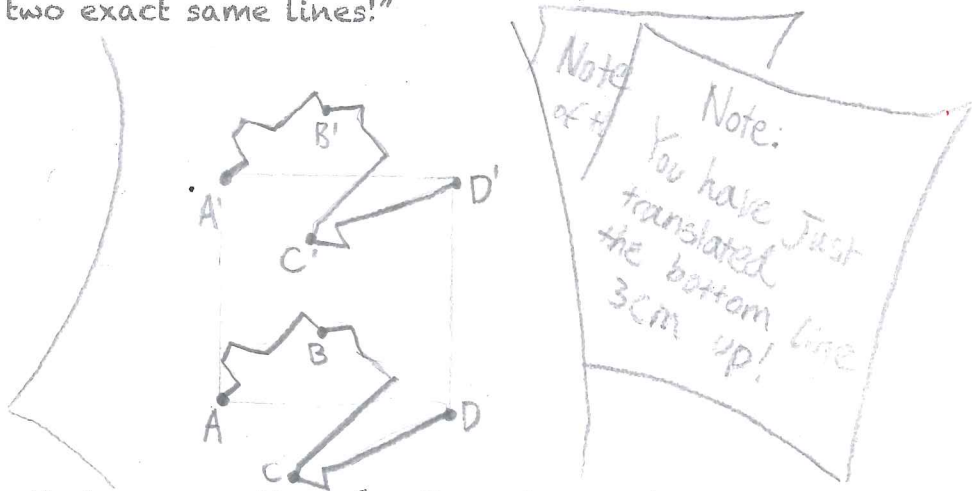 two exact same lines!"
B'
A'
D'
C'
B
A
D
C
Note
of t
Note:
You have Just
translated
the bottom line
3cm up!